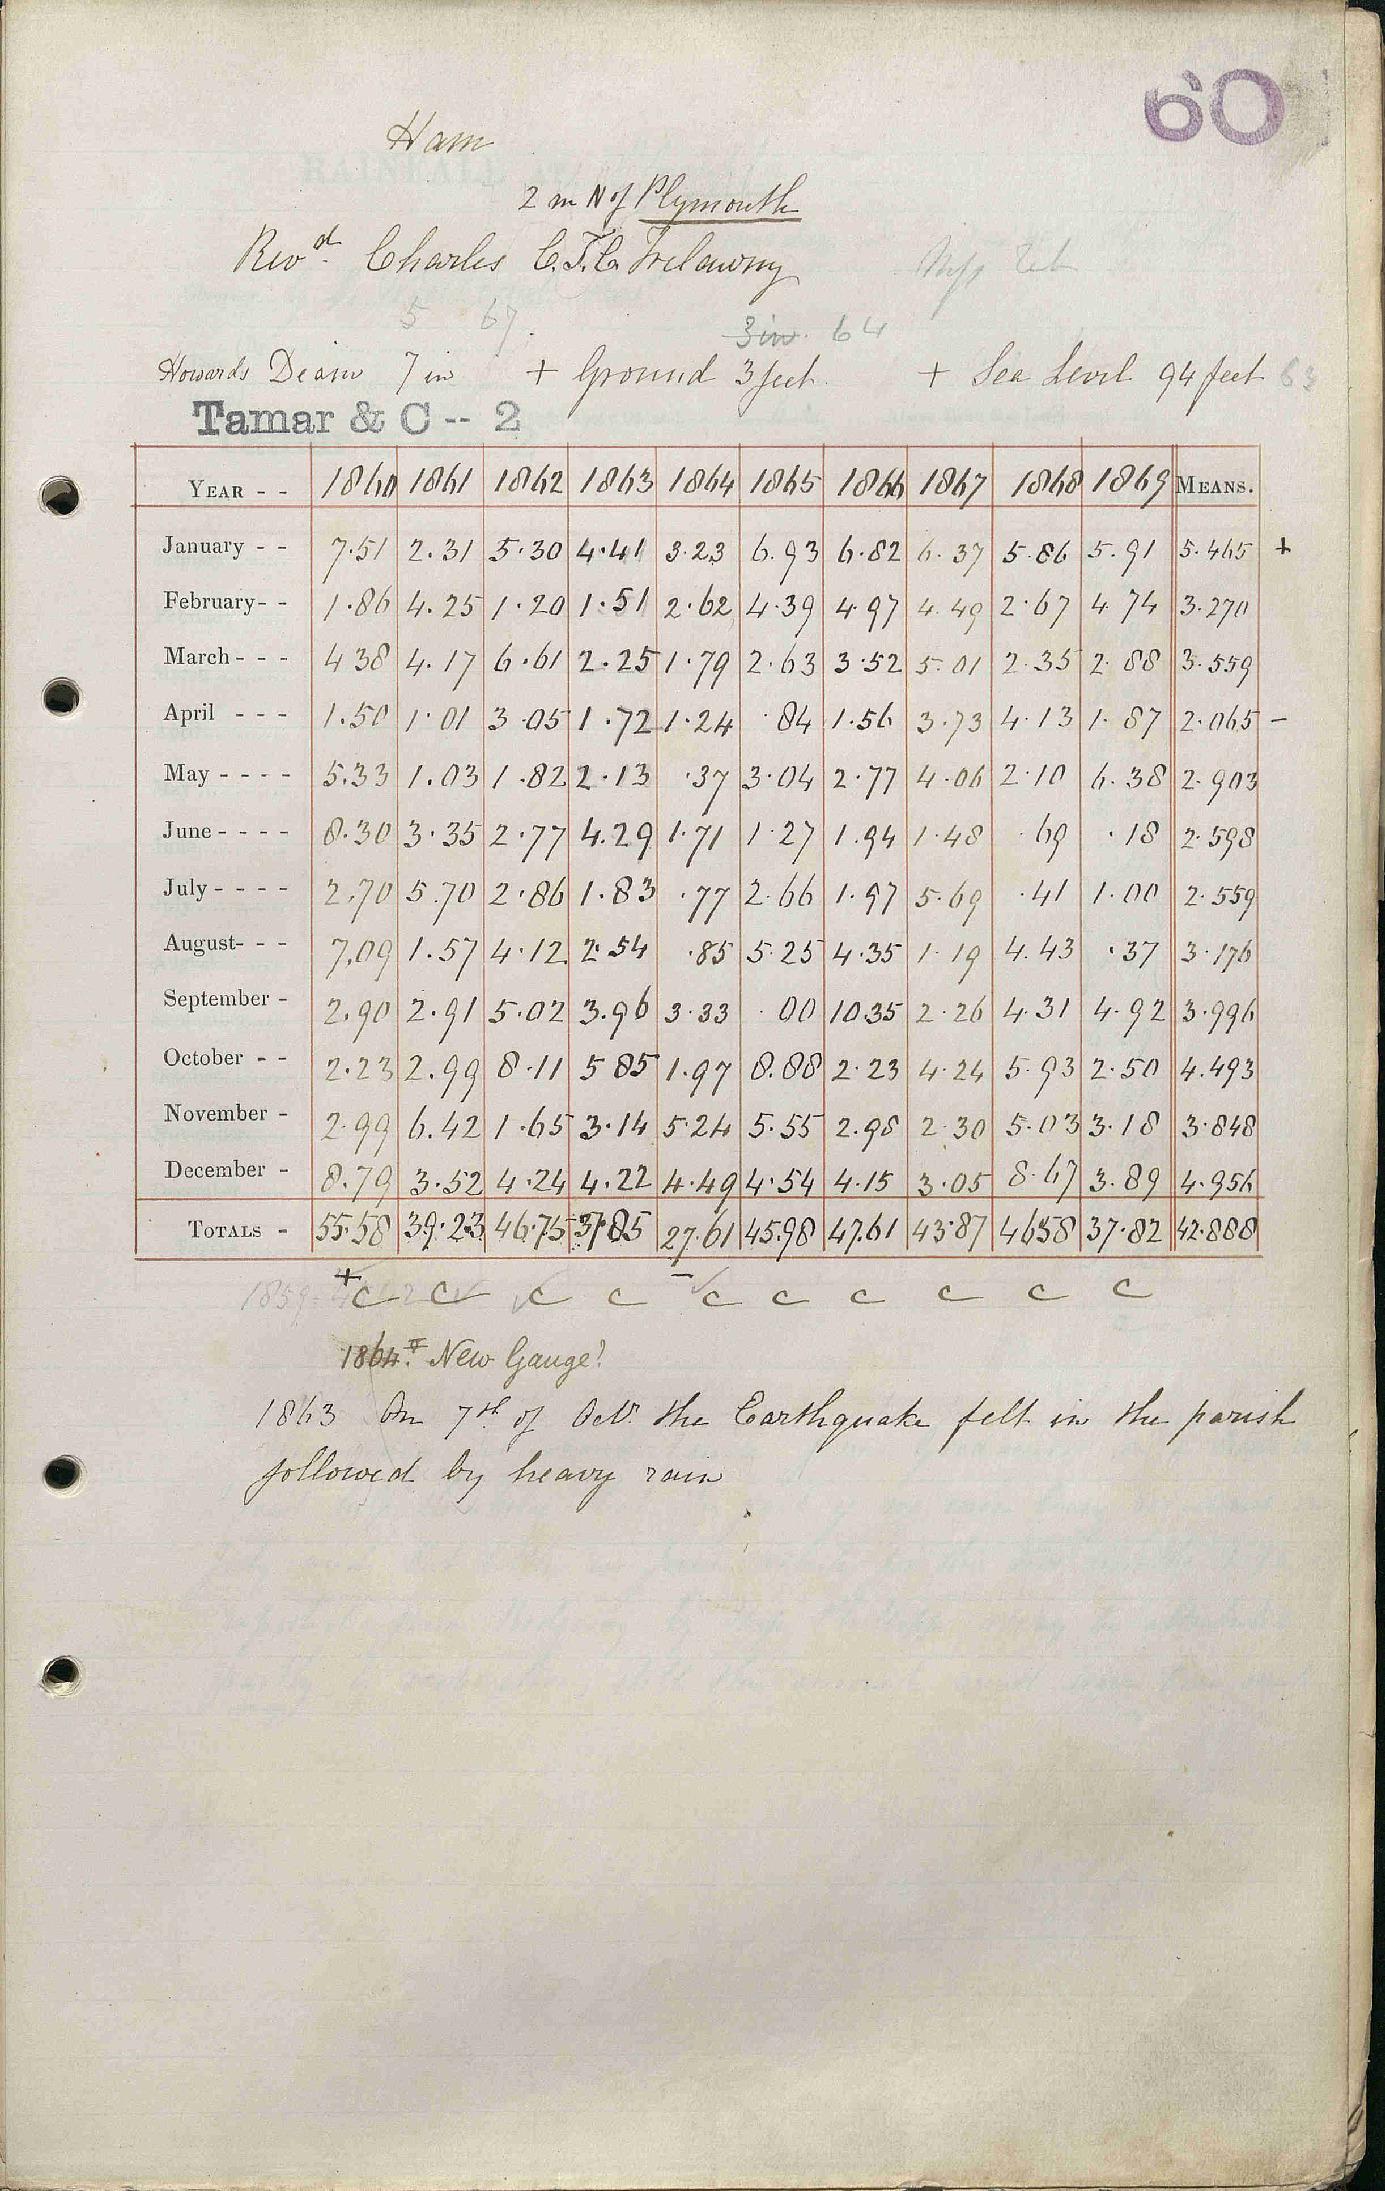 60
Ham
2 m N of Plymouth
Revd. Charles C.T.C. Trelawny
5 67.
3 in. 64
Howards Diam 7 in + Ground 3 feet. + Sea Level 94 feet 63
Tamar & C -- 2
YEAR - - 1860 1861 1862 1863 1864 1865 1866 1867 1868 1869 MEANS.
January - - 7.51 2.31 5.30 4.41 3.23 6.93 6.82 6.37 5.86 5.91 5.465 +
February - - 1.86 4.25 1.20 1.51 2.62 4.39 4.97 4.49 2.67 4.74 3.270
March - - - 4 38 4.17 6.61 2.25 1.79 2.63 3.52 5.01 2.35 2.88 3.559
April - - - 1.50 1.01 3.05 1.72 1.24 .84 1.56 3.73 4.13 1.87 2.065 -
May - - - - 5.33 1.03 1.82 2.13 .37 3.04 2.77 4.06 2.10 6.38 2.903
June - - - - 8.30 3.35 2.77 4.29 1.71 1.27 1.94 1.48 .69 .18 2.598
July - - - - 2.70 5.70 2.86 1.83 .77 2.66 1.97 5.69 .41 1.00 2.559
August - - - 7.09 1.57 4.12 2.54 .85 5.25 4.35 1.19 4.43 .37 3.176
September - 2.90 2.91 5.02 3.96 3.33 .00 10.35 2.26 4.31 4.92 3.996
October - - 2.23 2.99 8.11 5 85 1.97 8.88 2.23 4.24 5.93 2.50 4.493
November - 2.99 6.42 1.65 3.14 5.24 5.55 2.98 2.30 5.03 3.18 3.848
December - 8.79 3.52 4.24 4.22 4.49 4.54 4.15 3.05 8.67 3.89 4.956
TOTALS - 55.58 39.23 46.75 37.85 27.61 45.98 47.61 43.87 46.58 37.82 42.888
+ -
1859 c c c c c c c c c c
1864. New Gauge?
1863 On 7th of Octr. the Earthquake felt in the parish
followed by heavy rain